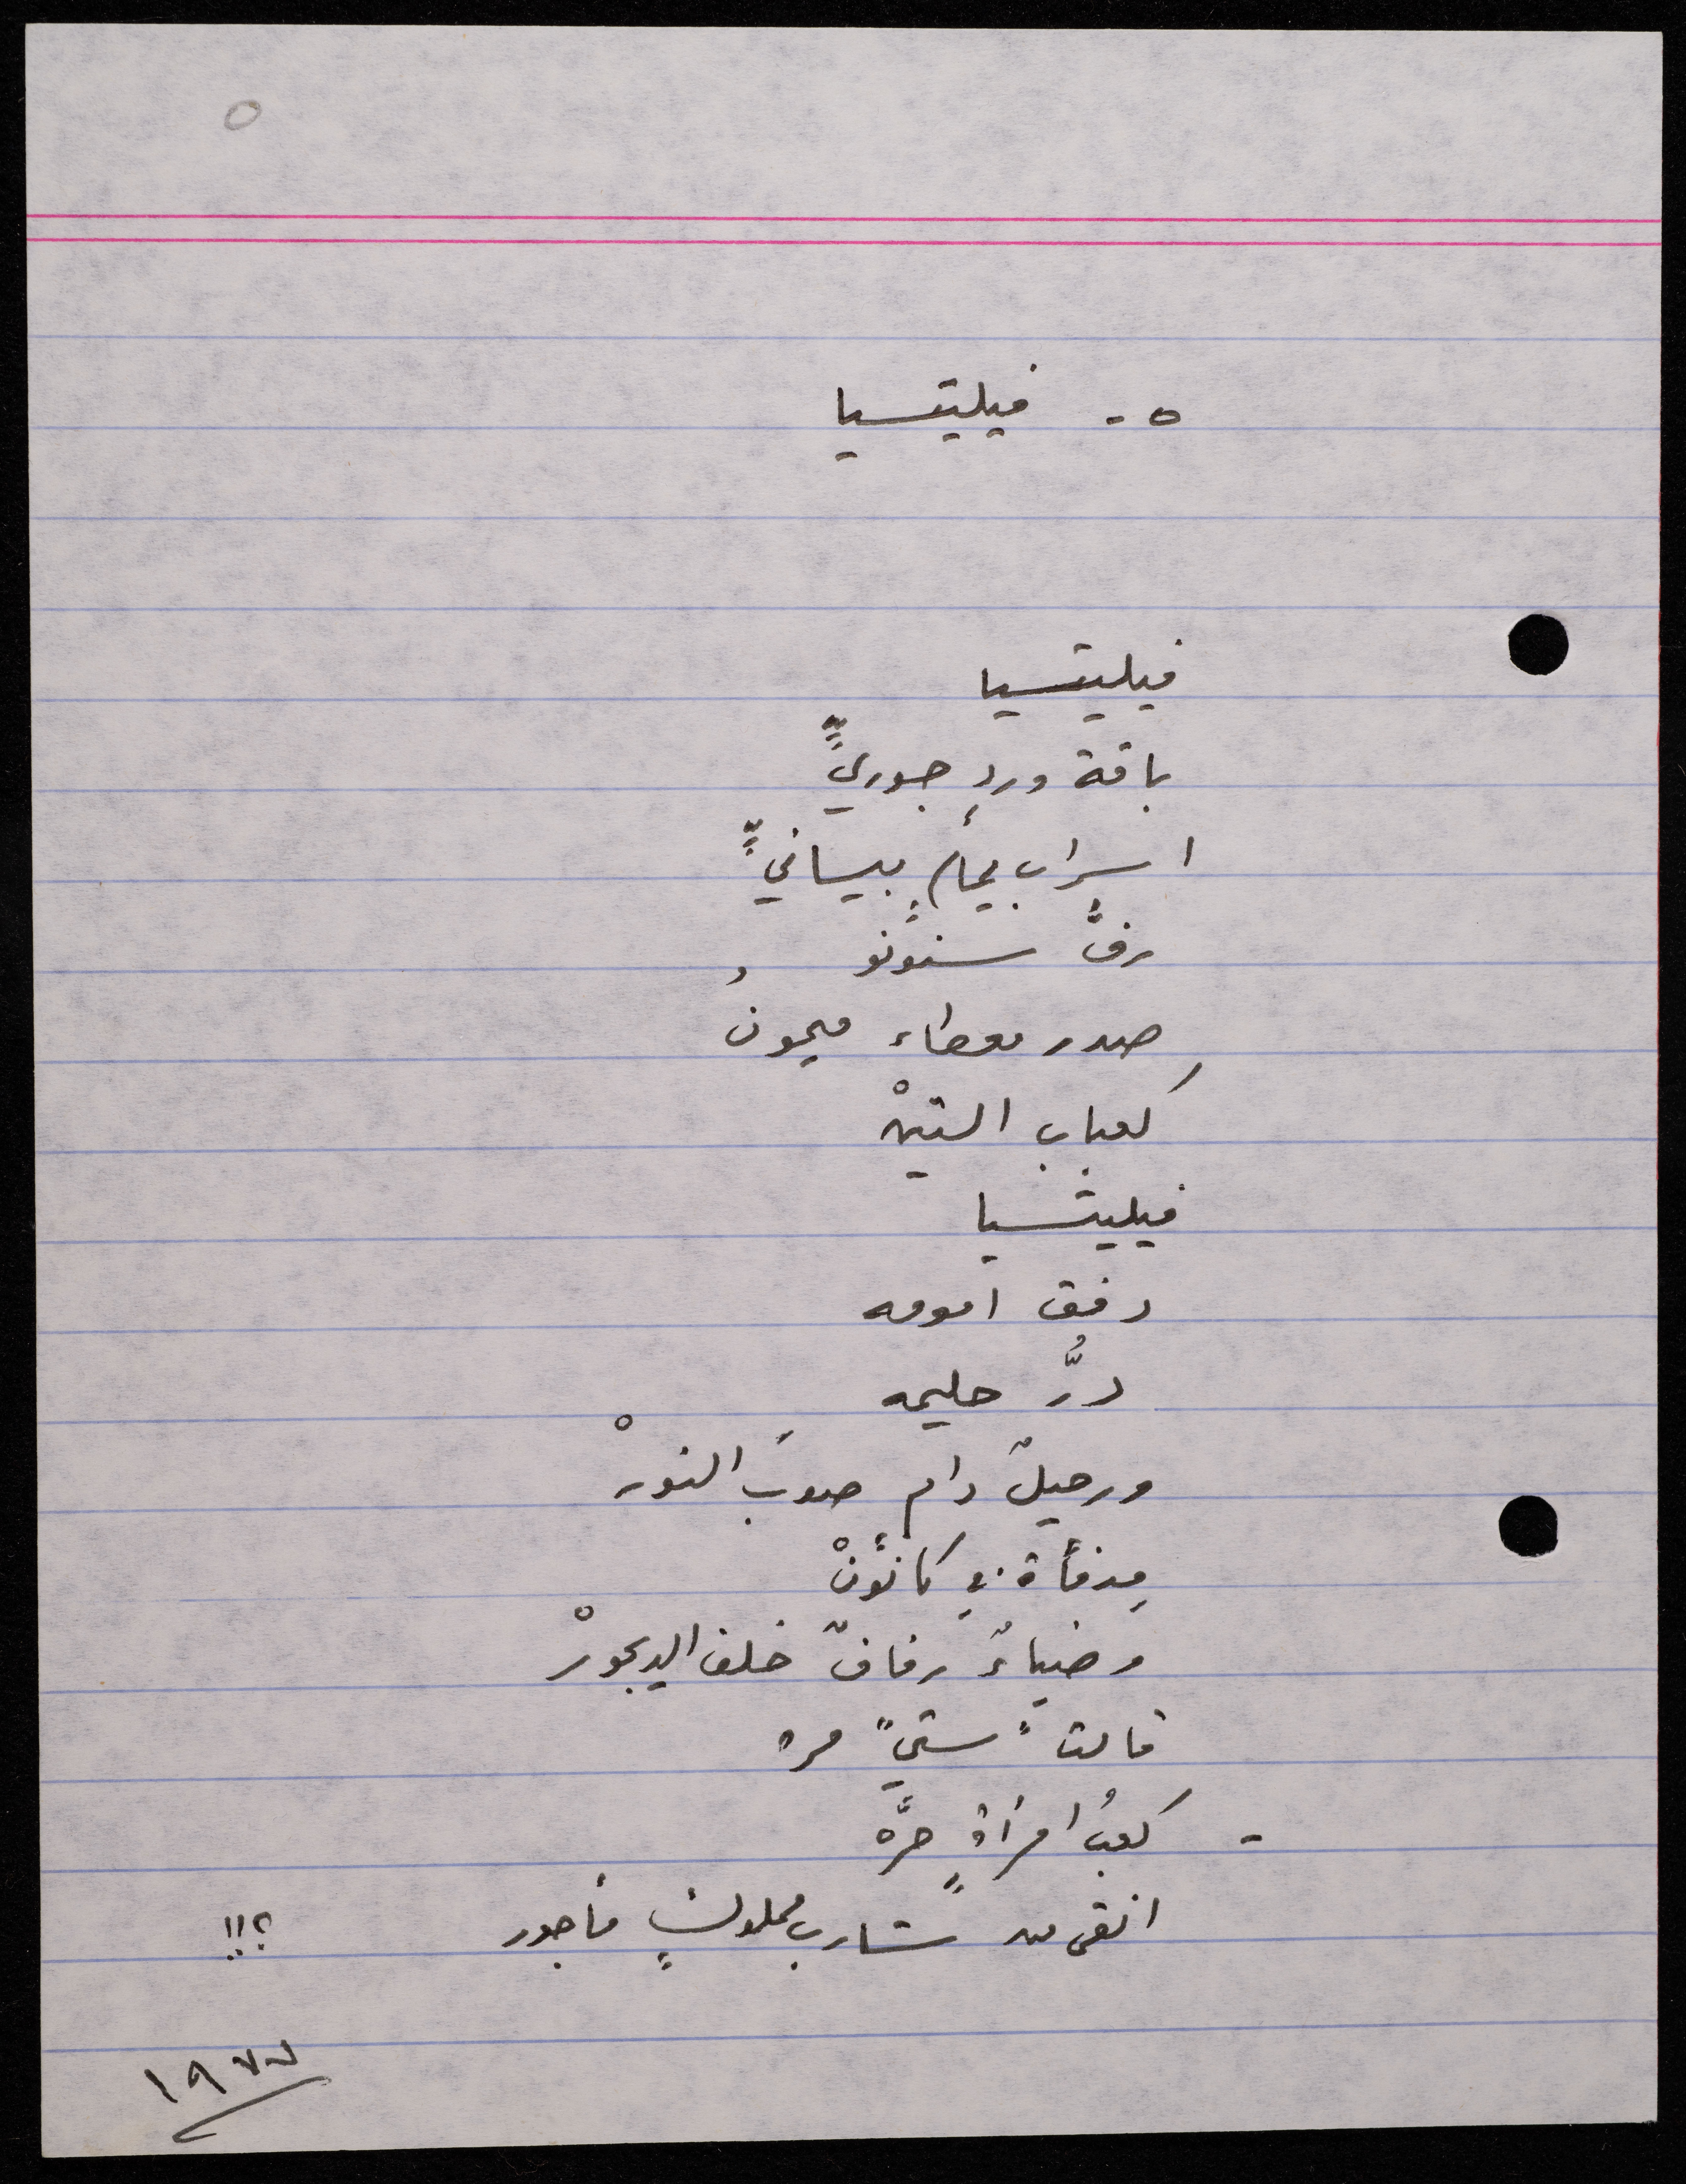 ٥
٥ - فيليتسيا
فيليتسيا
باقة وردٍ جوريٍّ
اسراب يمامٍ بيسانيٍّ
رفُّ سنونو
صدر معطاء ميمونُ
كعباب التينْ
فيليتسيا
دفق امومه
درُّ حليمه
ورحيلٌ دام صوبَ النورْ
مدفأة في كانونْ
وضياءٌ رفافٌ خلف الديجورْ
قالت "ستي" مره
- كعبُ امرأةٍ حرَّه
انقى من شارب مملوكٍ مأجور ؟!!